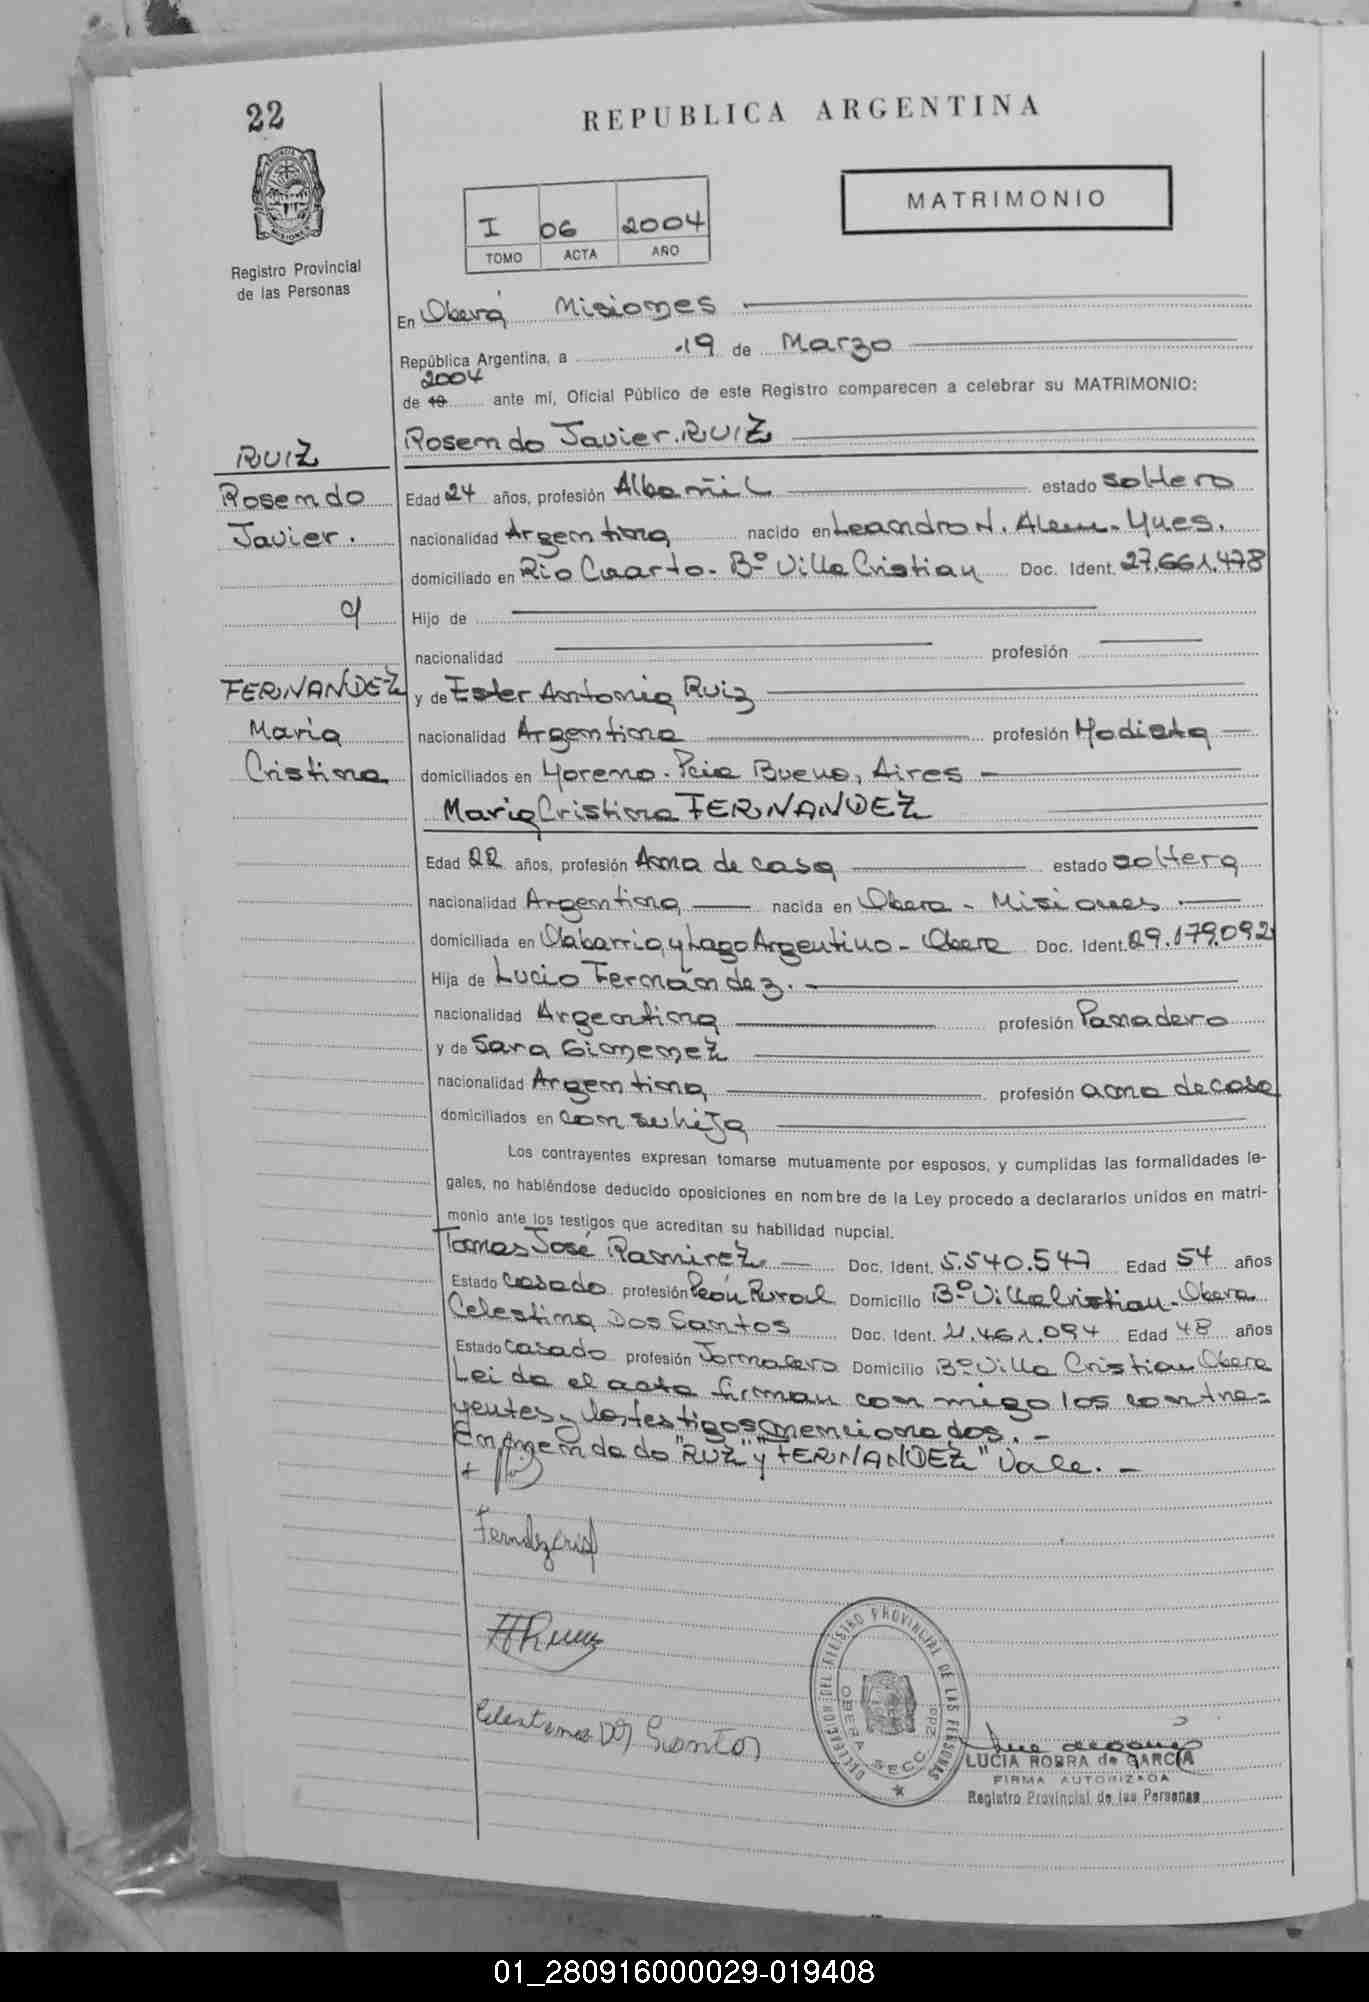 22
REPUBLICA ARGENTINA
MATRIMONIO
I 06 2004
TOMO ACTA AÑO
Registro Provincial
de las Personas
En Oberá Misiones
República Argentina, a 19 de Marzo
2004
de 19 ante mí, Oficial Público de este Registro comparecen a celebrar su MATRIMONIO:
Rosendo Javier RUIZ
RUIZ
Rosendo
Javier.
c/
FERNANDEZ
Maria
Cristina
Edad 24 años, profesión Albañil estado soltero
nacionalidad Argentina nacido en Leandro N. Alem-Mnes.
domiciliado en Rio Cuarto-Bº Villa Cristian Doc. Ident. 27.661.478
Hijo de
nacionalidad profesión
y de Ester Antonia Ruiz
nacionalidad Argentina profesión Modista
domiciliados en Moreno. Pcia Buenos Aires
Maria Cristina FERNANDEZ
Edad 22 años, profesión Ama de casa estado soltera
nacionalidad Argentina nacida en Obera - Misiones
domiciliada en Olabarria y Lago Argentino - Obera Doc. Ident. 29.179.092
Hija de Lucio Fernández.
nacionalidad Argentina profesión Panadero
y de Sara Gimenez
nacionalidad Argentina profesión ama de casa
domiciliados en con su hija
Los contrayentes expresan tomarse mutuamente por esposos, y cumplidas las formalidades le-
gales, no habiéndose deducido oposiciones en nombre de la Ley procedo a declararlos unidos en matri-
monio ante los testigos que acreditan su habilidad nupcial.
Tomas José Ramirez Doc. Ident. 5.540.547 Edad 54 años
Estado casado profesión Peón Rural Domicilio Bº Villa Cristian-Obera
Celestina Dos Santos Doc. Ident. 21.461.094 Edad 48 años
Estado casado profesión Jornalero Domicilio Bº Villa Cristian Obera
Leida el acta firman conmigo los contra=
yentes y los testigos mencionados. -
Enmendado "RUIZ" y "FERNANDEZ" Vale. -
Celestinos Dos Santos
DELEGACION DEL REGISTRO PROVINCIAL DE LAS PERSONAS
OBERA SECC. 2da.
LUCIA ROBRA de GARCIA
FIRMA AUTORIZADA
Registro Provincial de las Personas
01_280916000029-019408